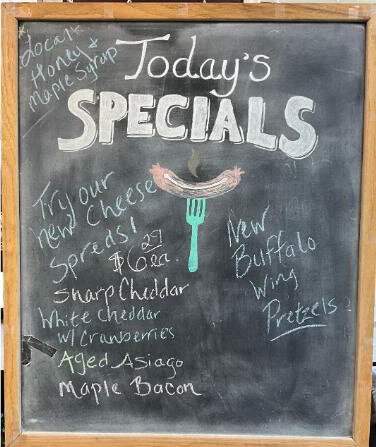 *Local*
Honey &
Maple Syrup
Today's
SPECIALS
Try our
new Cheese
Spreds!
$6 29 ea.
Sharp Cheddar
White Cheddar
w/ Cranberries
Aged Asiago
Maple Bacon
New
Buffalo
Wing
Pretzels!